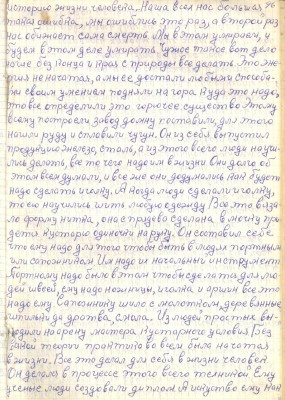 историю жизни человека. Наша всех нас большая, 96
такая ошибка, мы ошиблись это раз, а второй раз
нас обижает сама смерть. Мы в этом умираем, и
будем в этом деле умирать. Чужое такое вот дело
логие без конца и края с природы все делать. Это же
гия не початая, а мы ее достали любыми способа-
ми своим умением подняли на гора. Куда это надо,
то все определили это горючее существо. Этому
всему построили завод, домну поставили, для этого
нашли руду и сплавили чугун. Он из себя выпустил
продукцию железо, сталь, а из этого всего люди научи-
лись делать, все то чего надо им в жизни. Они долго об
этом всем думали, и все же они додумались, как будет
надо сделать иголку. А когда люди сделали иголку,
то его научились шить любую одежду. Все это взяло
форму нитка, она с трудом сделана, в мочку пря-
дется кустарю одиночки на руку. Он составил себе
что ему надо для того чтобы быть в людях портным
или сапожником. Им надо их начальный инструмент
Портному надо было в этом чтобы сделать для лю-
дей швей, ему надо ножницы, иголка и аршин все это
надо ему. Сапожнику шило с молотком, деревянные
шпильки да дратва, смола. Из людей простых вы-
водили на арену мастера Кустарного условия. Без
такой теории практиково всем было начата
в жизни. Все это делал для себя в жизни человек
Он делался в процессе этого всего техникой Ему
ученые люди создавали диплом. А искусство ему как